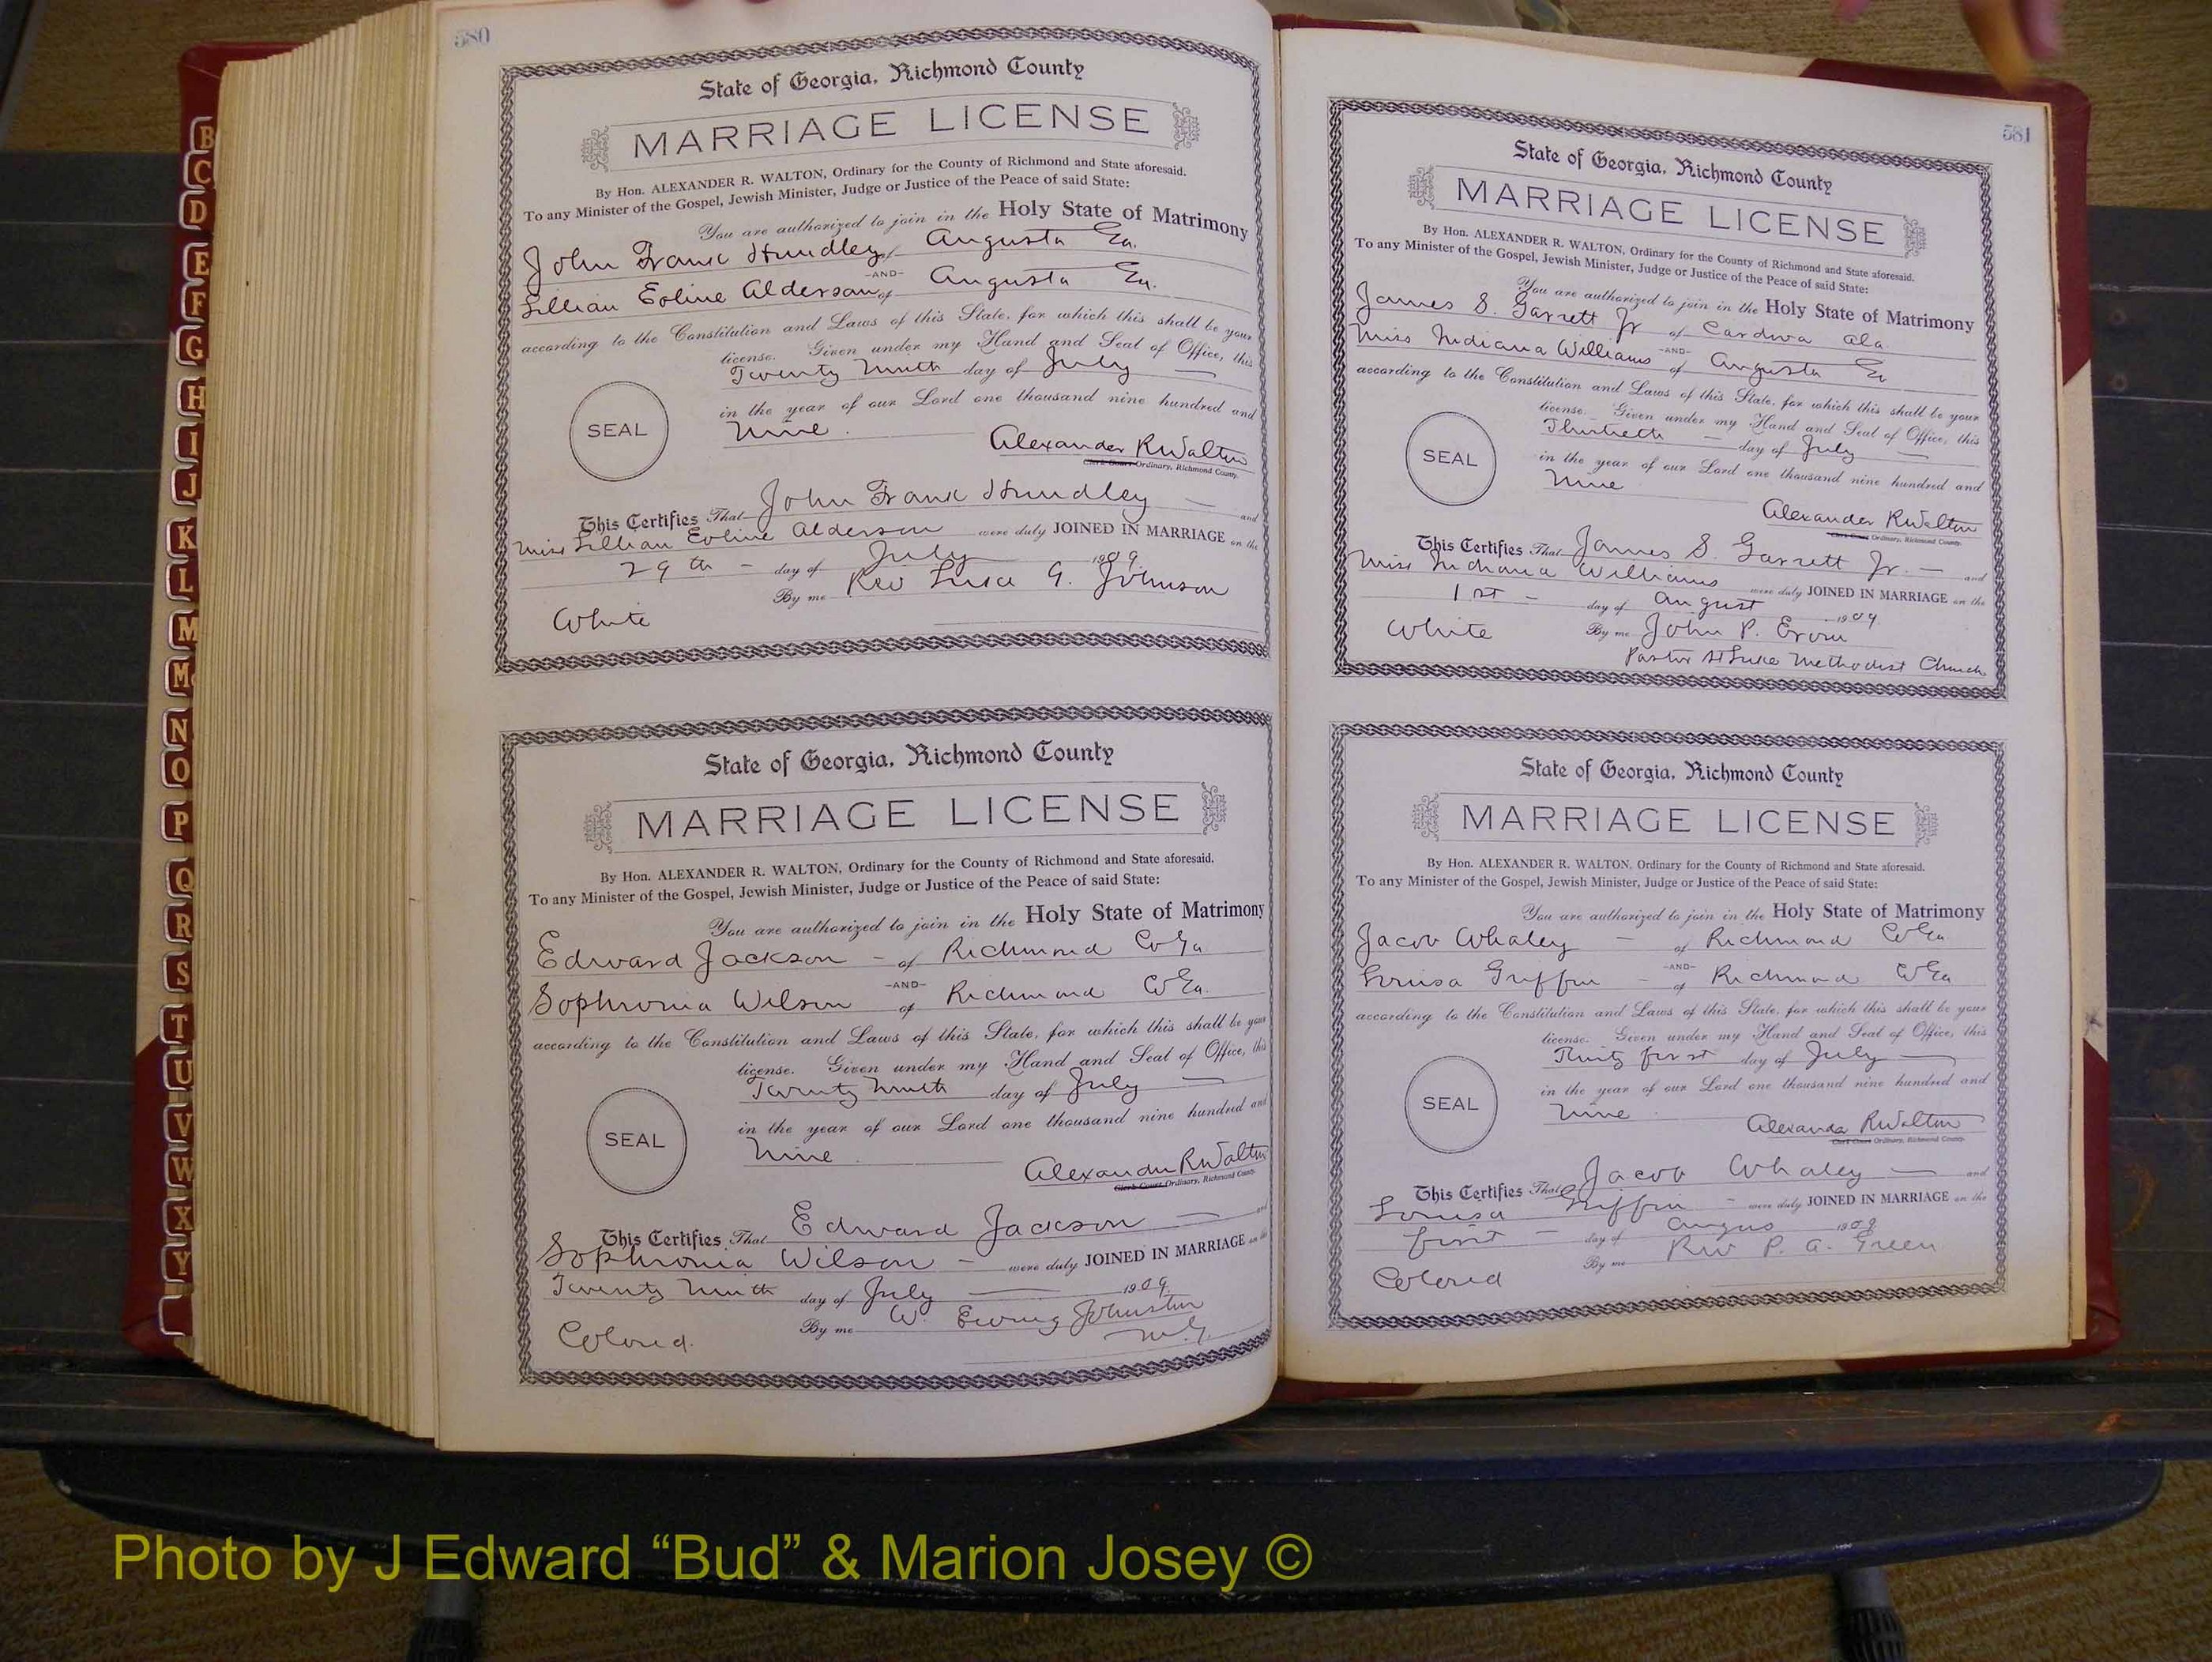 580
State of Georgia, Richmond County
MARRIAGE LICENSE
By Hon. ALEXANDER R. WALTON, Ordinary for the County of Richmond and State aforesaid.
To any Minister of the Gospel, Jewish Minister, Judge or Justice of the Peace of said State:
You are authorized to join in the Holy State of Matrimony
John Frank Hundley of Augusta Ga.
-AND-
Lillian Evline Alderson of Augusta Ga.
according to the Constitution and Laws of this State, for which this shall be your
license. Given under my Hand and Seal of Office, this
Twenty Ninth day of July
in the year of our Lord one thousand nine hundred and
SEAL
Nine.
Alexander R Walton
Clerk Court Ordinary, Richmond County.
This Certifies That John Frank Hundley and
Miss Lillian Evline Alderson were duly JOINED IN MARRIAGE on the
29th - day of July 1909.
By me Rev Luke G. Johnson
White
State of Georgia, Richmond County
MARRIAGE LICENSE
By Hon. ALEXANDER R. WALTON, Ordinary for the County of Richmond and State aforesaid.
To any Minister of the Gospel, Jewish Minister, Judge or Justice of the Peace of said State:
You are authorized to join in the Holy State of Matrimony
Edward Jackson - of Richmond Co Ga
-AND-
Sophronia Wilson of Richmond Co Ga.
according to the Constitution and Laws of this State, for which this shall be your
license. Given under my Hand and Seal of Office, this
Twenty Ninth day of July
in the year of our Lord one thousand nine hundred and
SEAL
Nine
Alexander R Walton
Clerk Court Ordinary, Richmond County.
This Certifies That Edward Jackson and
Sophronia Wilson - were duly JOINED IN MARRIAGE on the
Twenty Ninth day of July 1909.
By me W. Ewing Johnston
Colored. M.G.
581
State of Georgia, Richmond County
MARRIAGE LICENSE
By Hon. ALEXANDER R. WALTON, Ordinary for the County of Richmond and State aforesaid.
To any Minister of the Gospel, Jewish Minister, Judge or Justice of the Peace of said State:
You are authorized to join in the Holy State of Matrimony
James S. Garrett Jr of Cardova Ala
-AND-
Miss Indiana Williams of Augusta Ga
according to the Constitution and Laws of this State, for which this shall be your
license. Given under my Hand and Seal of Office, this
Thirtieth - day of July
in the year of our Lord one thousand nine hundred and
SEAL
Nine
Alexander R Walton
Clerk Court Ordinary, Richmond County.
This Certifies That James S. Garrett Jr. - and
Miss Indiana Williams were duly JOINED IN MARRIAGE on the
1st - day of August 1909.
White By me John P. Erwin
Pastor St Luke Methodist Church
State of Georgia, Richmond County
MARRIAGE LICENSE
By Hon. ALEXANDER R. WALTON, Ordinary for the County of Richmond and State aforesaid.
To any Minister of the Gospel, Jewish Minister, Judge or Justice of the Peace of said State:
You are authorized to join in the Holy State of Matrimony
Jacob Whaley - of Richmond Co Ga
-AND-
Louisa Griffin - of Richmond Co Ga
according to the Constitution and Laws of this State, for which this shall be your
license. Given under my Hand and Seal of Office, this
Thirty first day of July
in the year of our Lord one thousand nine hundred and
SEAL
Nine
Alexander R Walton
Clerk Court Ordinary, Richmond County.
This Certifies That Jacob Whaley - and
Louisa Griffin - were duly JOINED IN MARRIAGE on the
first - day of Augus 1909
By me Rev P. A. Green
Colored
B
C
D
E
F
G
H
I
J
K
L
M
Mc
N
O
P
Q
R
S
T
U
V
W
X
Y
Photo by J Edward “Bud” & Marion Josey ©